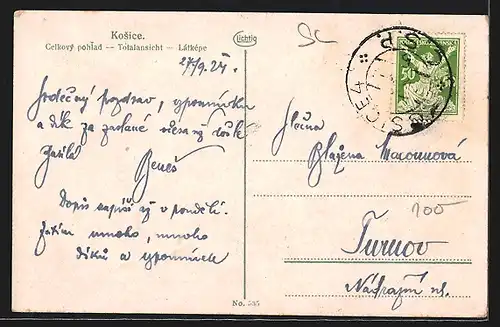 Košice.
Celkový pohlad — Totalansicht — Látképe
Lichtig
27/9. 24.
Srdečný pozdrav, vzpomínku
a dík za zaslané včerejší
zasílá
Beneš
Dopis napíši až v pondělí.
Zatím mnoho, mnoho
díků a vzpomínek
No.
SC
50
KOŠICE 4
Č.S.R.
Slečna
Blažena Macounová
100
Turnov
Nádražní ul.